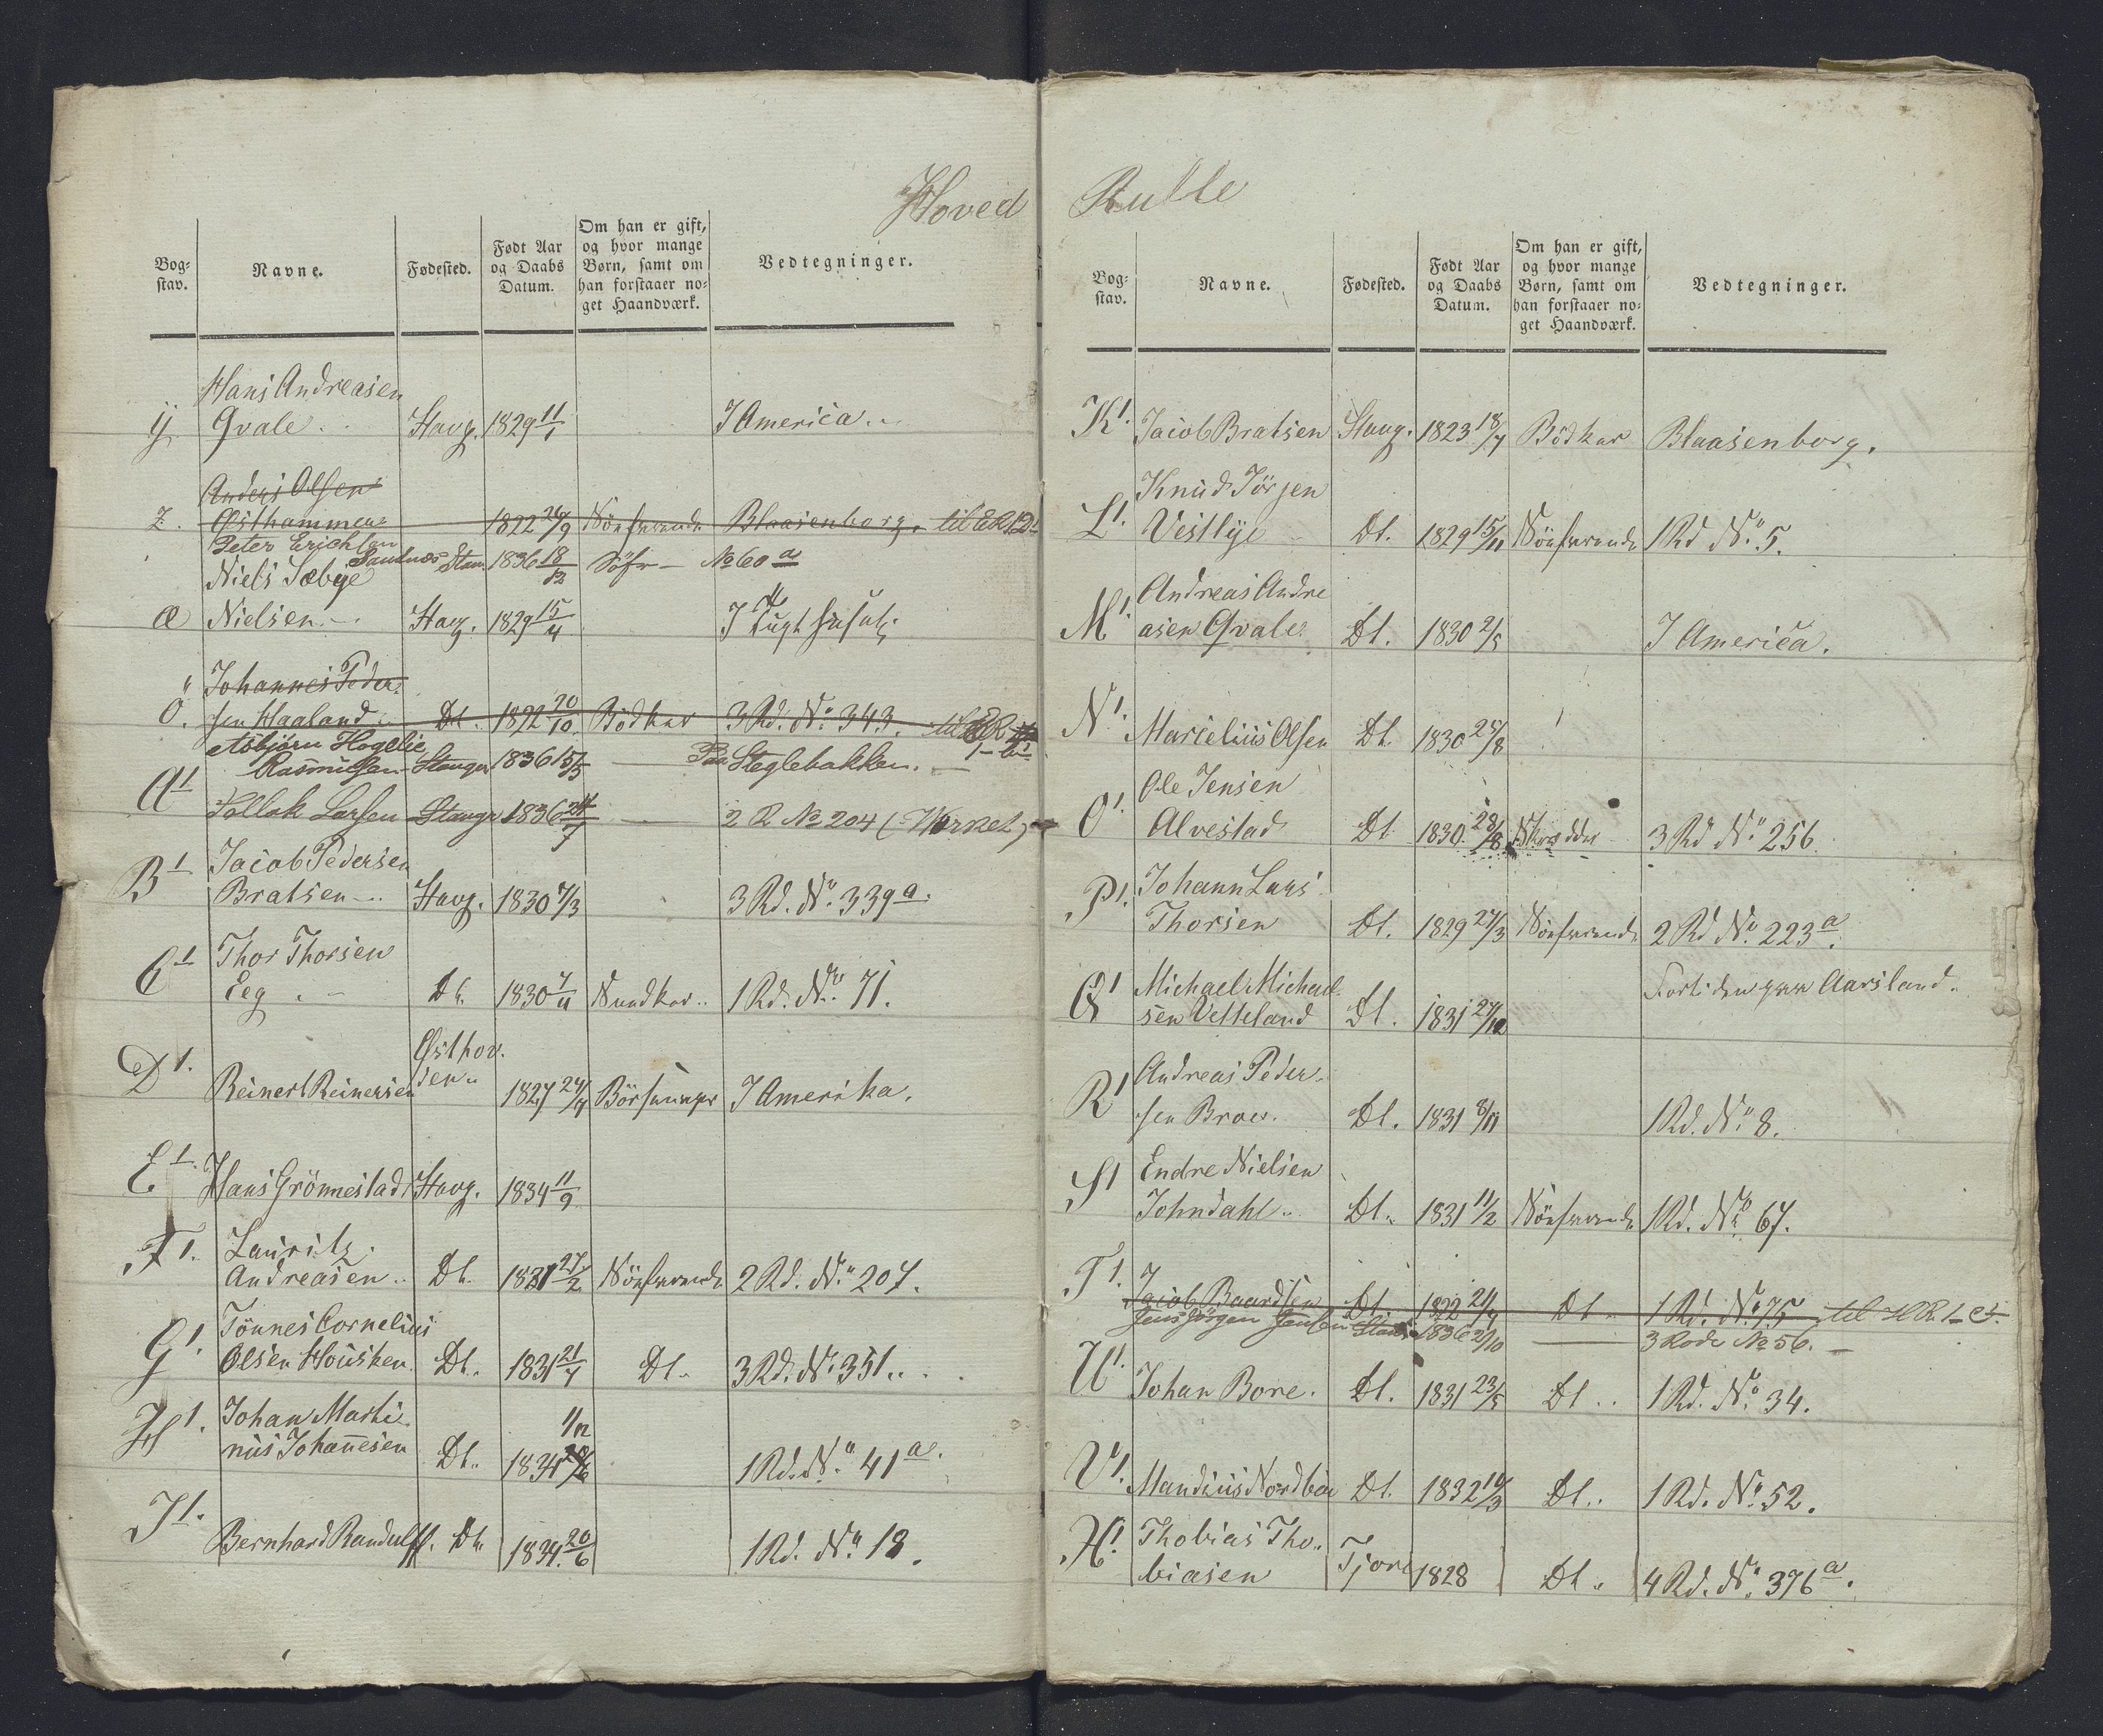 Hoved
Bog-
stav.
Navne.
Fødested.
Født Aar
og Daabs
Datum.
Om han er gift,
og hvor mange
Børn, samt om
han forstaaer no-
get Haandværk.
Vedtegninger.
Hans Andreasen
ÿ Qvale Havg. 1829 11/1 I America
Anders Olsen
Z. Østhammen 1822 26/9 Söefarende Blaasenborg.
Peter Erichsen
Sandnes Stav. 1836 18/12 Söfr No 60 a
Niels Sæbye
Æ Nielsen Havg. 1829 15/4
Johannes Peder-
Ö. sen Haaland Dt. 1822 20/10 Bödker 3 Rd. No. 343.
Asbjörn Hogelie
Rasmussen Stavgr 1836 15/5 Paa Steglebakken.
A1 Follak Larsen Stavgr 1836 24/7 2 R No 204 (Virket)
Jacob Pedersen
B1 Bratsen Havg. 1830 7/3 3 Rd. No. 339 a.
Thor Thorsen
C1 Eeg Dt. 1830 7/11 1 Rd. No. 71.
Østhov.
D1. Reinert Reinersen 1827 I Amerika.
E1. Hans Grönnestad Havg. 1834 11/9
F1. Lauritz
Andreasen Dt. 1831 27/2 Söefarende 2 Rd. No. 207.
Tönnes Cornelius
G1. Olsen Housken Dt. 1831 21/7 Dt. 3 Rd. No. 351
H1. Johan Marti-
nus Johannesen Dt. 1834 11/12 1 Rd. No. 41 a.
I1. Bernhard Randulff. Dt. 1834 20/6 1 Rd. No. 18.
Rulle
Bog-
stav.
Navne.
Fødested.
Født Aar
og Daabs
Datum.
Om han er gift,
og hvor mange
Børn, samt om
han forstaaer no-
get Haandværk.
Vedtegninger.
K1. Jacob Bratsen Stavg. 1823 18/7 Bödker Blaasenborg.
Knud Törjen
L1. Vestlÿe Dt. 1829 15/11 Söefarende 1 Rd No. 5.
Andreas Andre
M1. asen Qvale Dt. 1830 2/5 I America.
N1. Marselius Olsen Dt. 1830 25/8
Ole Jensen
O1. Alvestad Dt 1830 28/8 Skrædder 3 Rd No. 256
Johann Lars
P1. Thorsen Dt. 1829 27/3 Söefarende 2 Rd No. 223 a.
Q1 Michael Michael-
sen Vetteland Dt. 1831 27/12
Aarsland.
Andreas Peder-
R1 sen Broe. Dt. 1831 8/11 1 Rd. No. 8.
Endre Nielsen
S1 Johndahl Dt. 1831 11/2 Söefarende 1 Rd. No. 67.
T1. Jacob Baardsen Dt. 1822 21/7 Dt 1 Rd. No. 75
Jens Jörgen Jensen 1836 2/10 3 Rode No 56.
U1. Johan Bore. Dt. 1831 23/5 Dt 1 Rd. No. 34.
V1. Mandius Nordböe Dt. 1832 Dt. 1 Rd. No. 52.
X1. Thobias Tho-
biasen Tjore 1828 Dt. 4 Rd. No. 376 a.